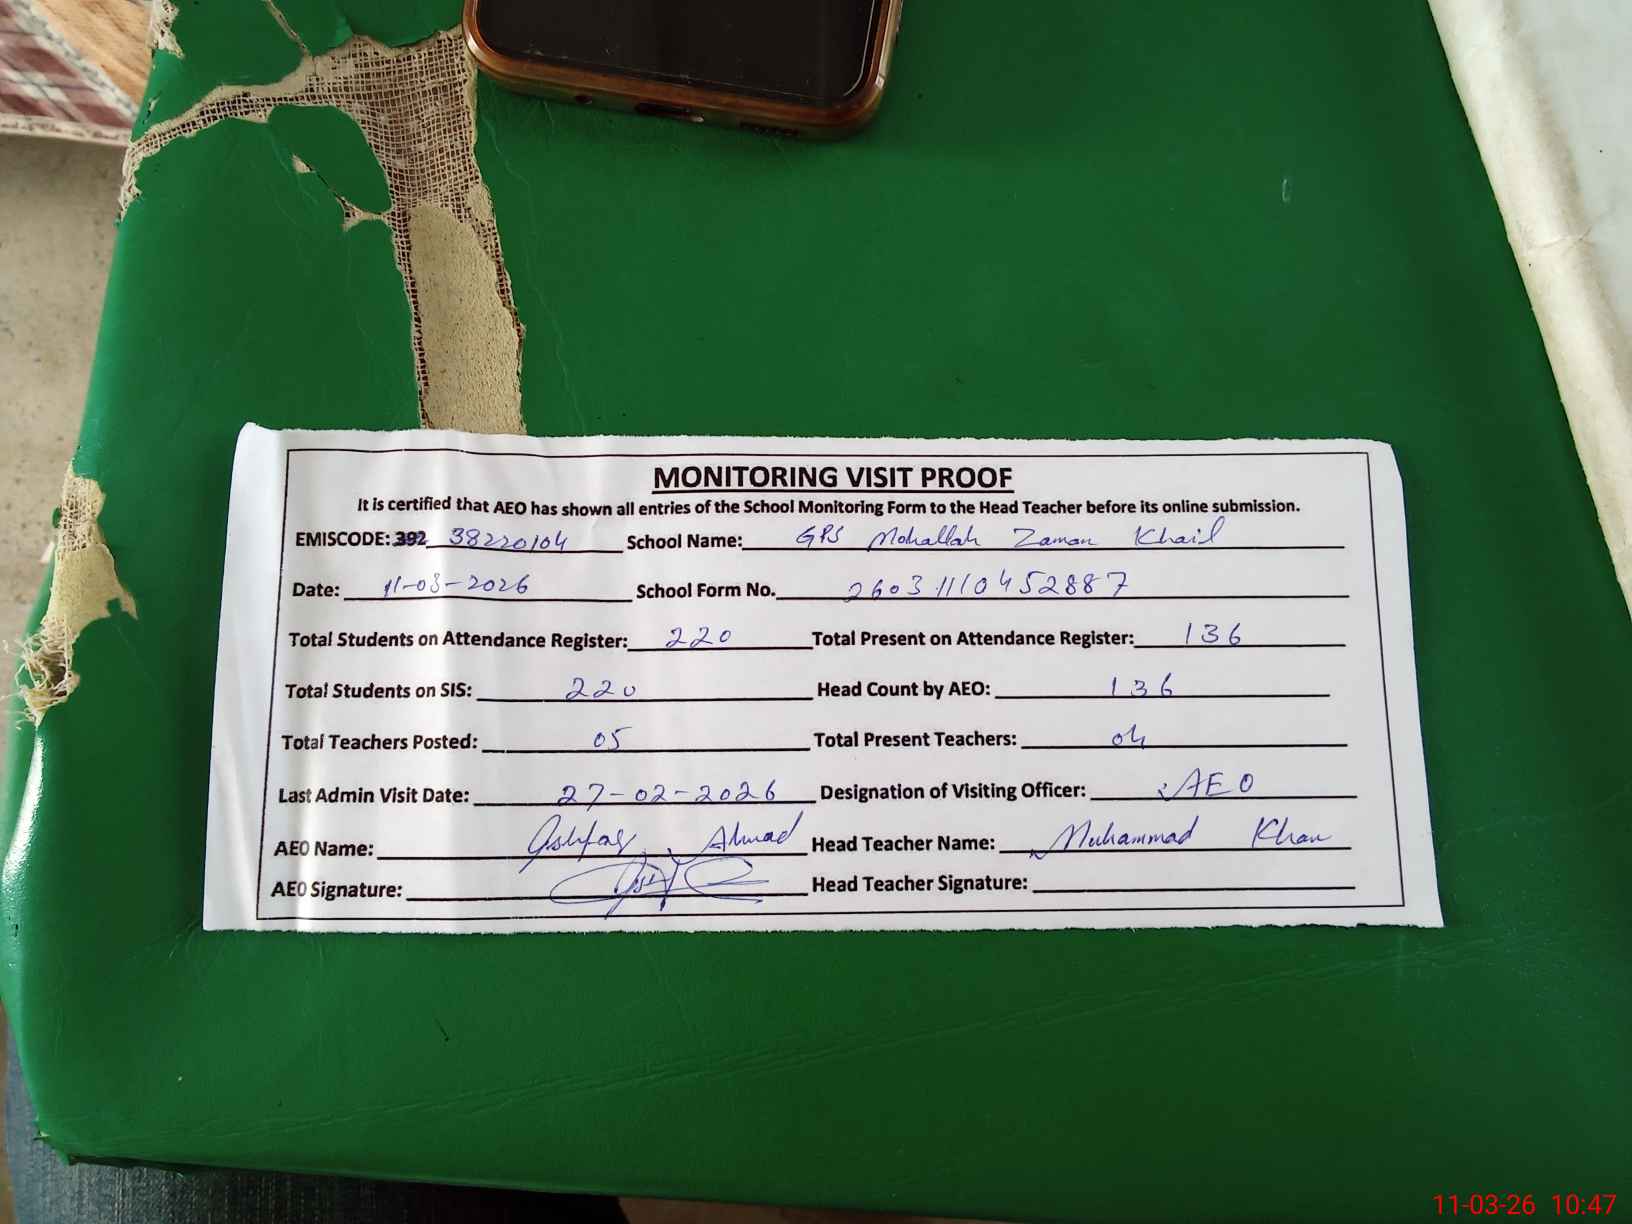 MONITORING VISIT PROOF
It is certified that AEO has shown all entries of the School Monitoring Form to the Head Teacher before its online submission.
EMISCODE: 392 38220104 School Name: GPS Mohallah Zaman Khail
Date: 11-03-2026 School Form No. 26031110452887
Total Students on Attendance Register: 220 Total Present on Attendance Register: 136
Total Students on SIS: 220 Head Count by AEO: 136
Total Teachers Posted: 05 Total Present Teachers: 04
Last Admin Visit Date: 27-02-2026 Designation of Visiting Officer: AEO
AEO Name: Ishfaq Ahmad Head Teacher Name: Muhammad Khan
AEO Signature: Head Teacher Signature:
11-03-26 10:47